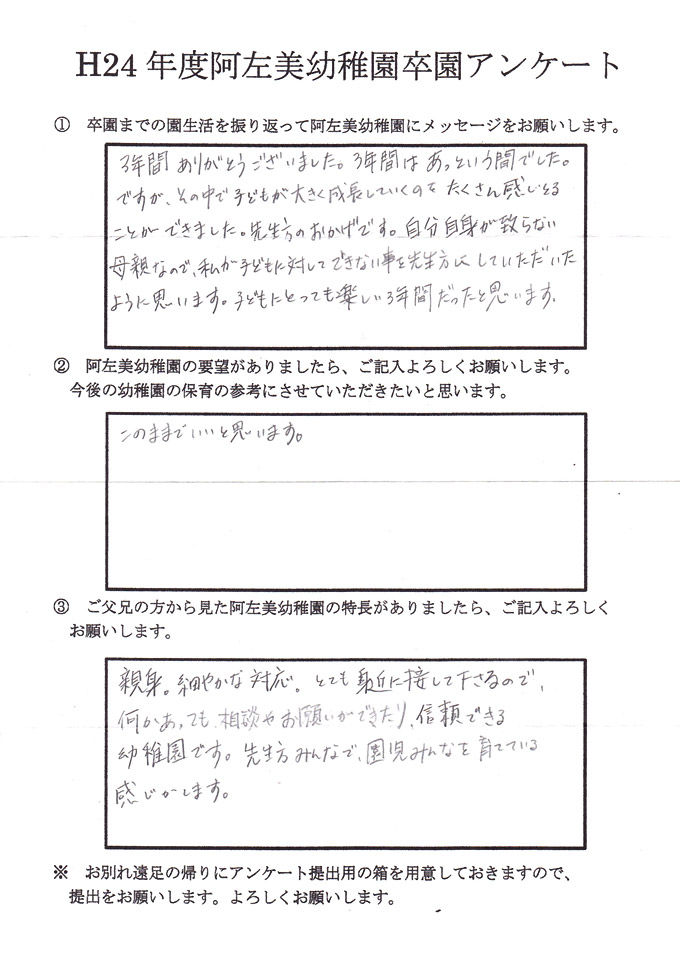 H24 年度阿左美幼稚園卒園アンケート
① 卒園までの園生活を振り返って阿左美幼稚園にメッセージをお願いします。
3年間 ありがとうございました。3年間は あっという間でした。
ですが、その中で 子どもが 大きく成長していくのを たくさん感じとる
ことができました。先生方のおかげです。自分自身が致らない
母親なので、私が子どもに対してできない事を先生方にしていただいた
ように思います。子どもにとっても楽しい3年間だったと思います。
② 阿左美幼稚園の要望がありましたら、ご記入よろしくお願いします。
今後の幼稚園の保育の参考にさせていただきたいと思います。
このままでいいと思います。
③ ご父兄の方から見た阿左美幼稚園の特長がありましたら、ご記入よろしく
お願いします。
親身。細やかな対応。とても身近に接して下さるので、
何かあっても、相談やお願いができたり、信頼できる
幼稚園です。先生方みんなで、園児みんなを育てている
感じがします。
※ お別れ遠足の帰りにアンケート提出用の箱を用意しておきますので、
提出をお願いします。よろしくお願いします。